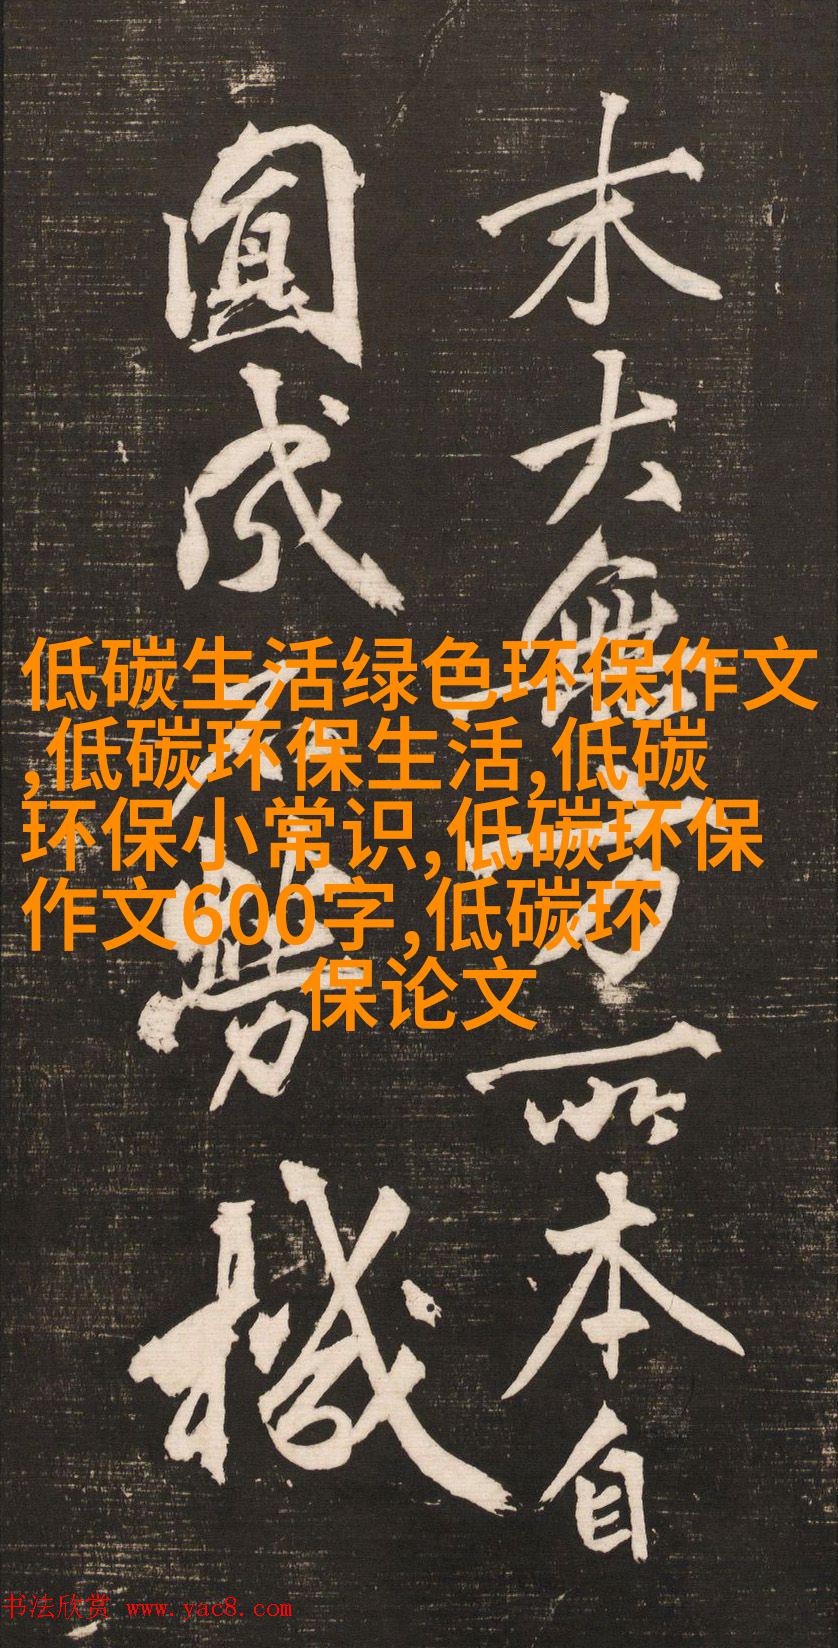 木大無方所本自
圓成不勞機
低碳生活绿色环保作文
,低碳环保生活,低碳
环保小常识,低碳环保
作文600字,低碳环
保论文
书法欣赏 www.yac8.com